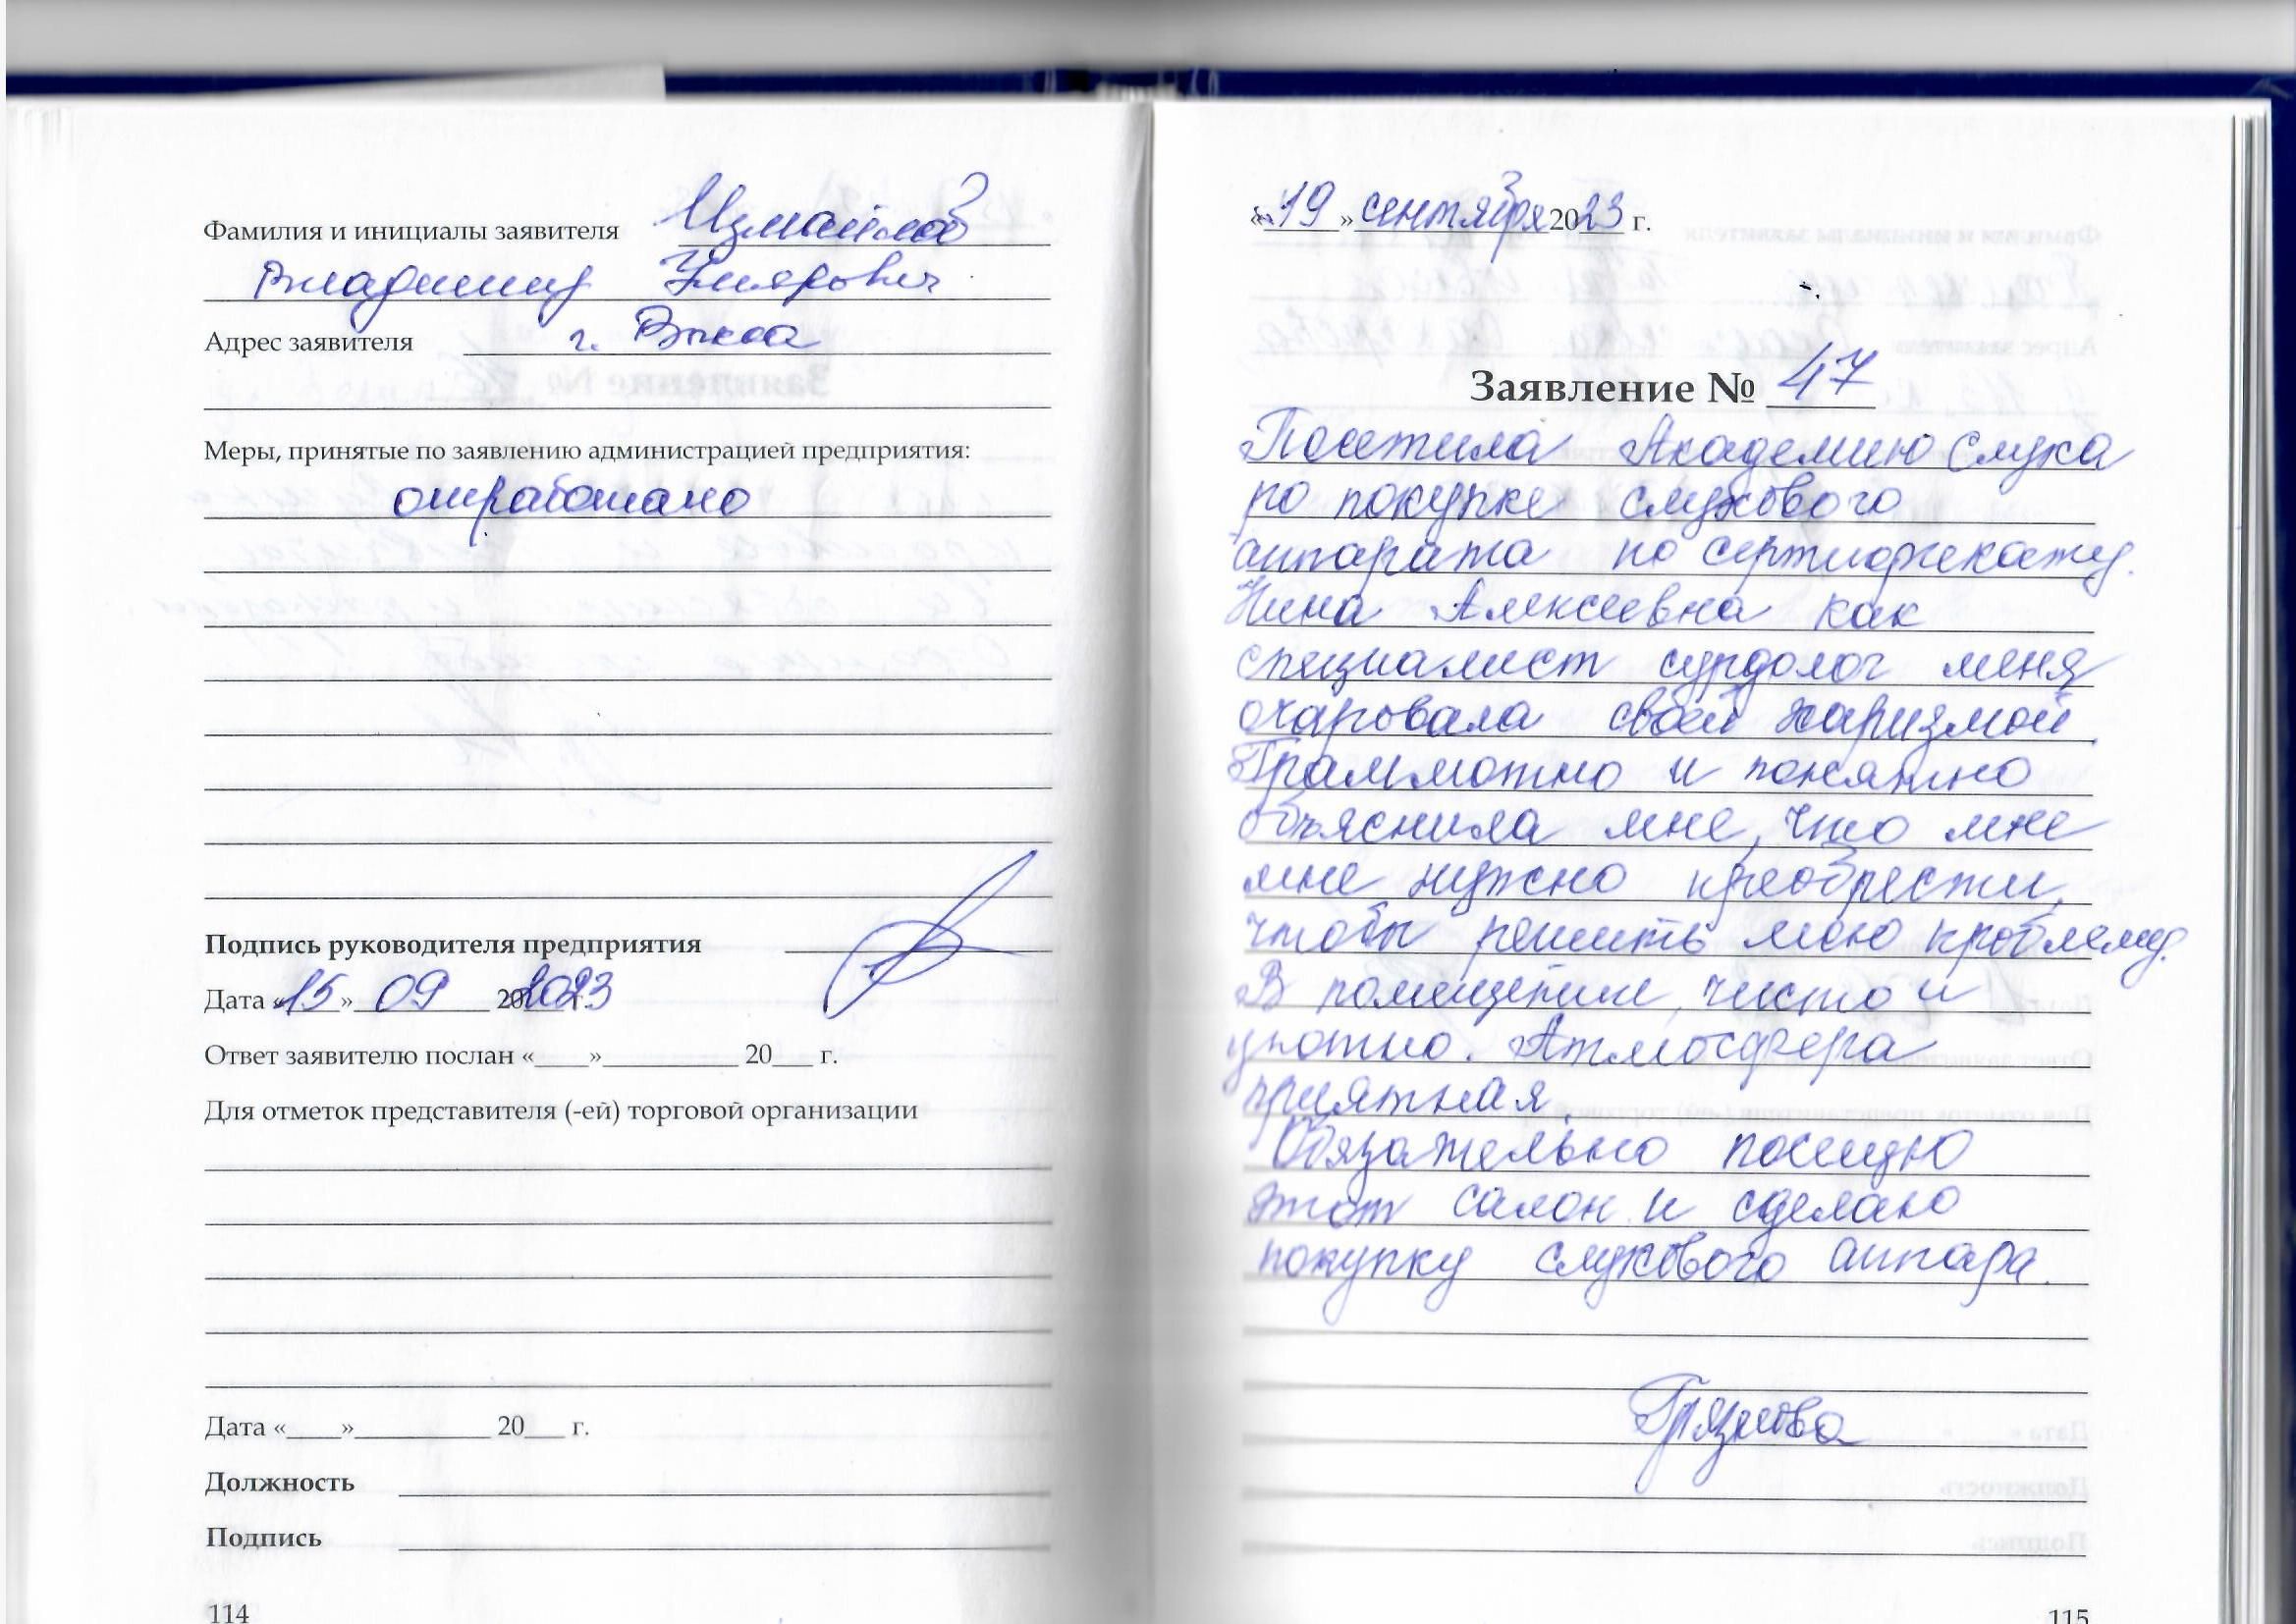 Фамилия и инициалы заявителя Измайлов
Владимир
Адрес заявителя г. Выкса
Меры, принятые по заявлению администрацией предприятия:
отработано
Подпись руководителя предприятия
Дата «15» 09 20 2023 г.
Ответ заявителю послан «____»__________ 20___ г.
Для отметок представителя (-ей) торговой организации
Дата «____»__________ 20___ г.
Должность
Подпись
114
«19» сентября 2023 г.
Заявление № 47
Посетила Академию Слуха
по покупке слухового
аппарата по сертификату.
Нина Алексеевна как
специалист сурдолог меня
очаровала своей харизмой.
Граммотно и понятно
объяснила мне, что мне
мне нужно преобрести,
чтобы решить мою проблему.
В помещении, чисто и
уютно. Атмосфера
приятная.
Обязательно посещу
этот салон и сделаю
покупку слухового аппара.
Грязнова
115